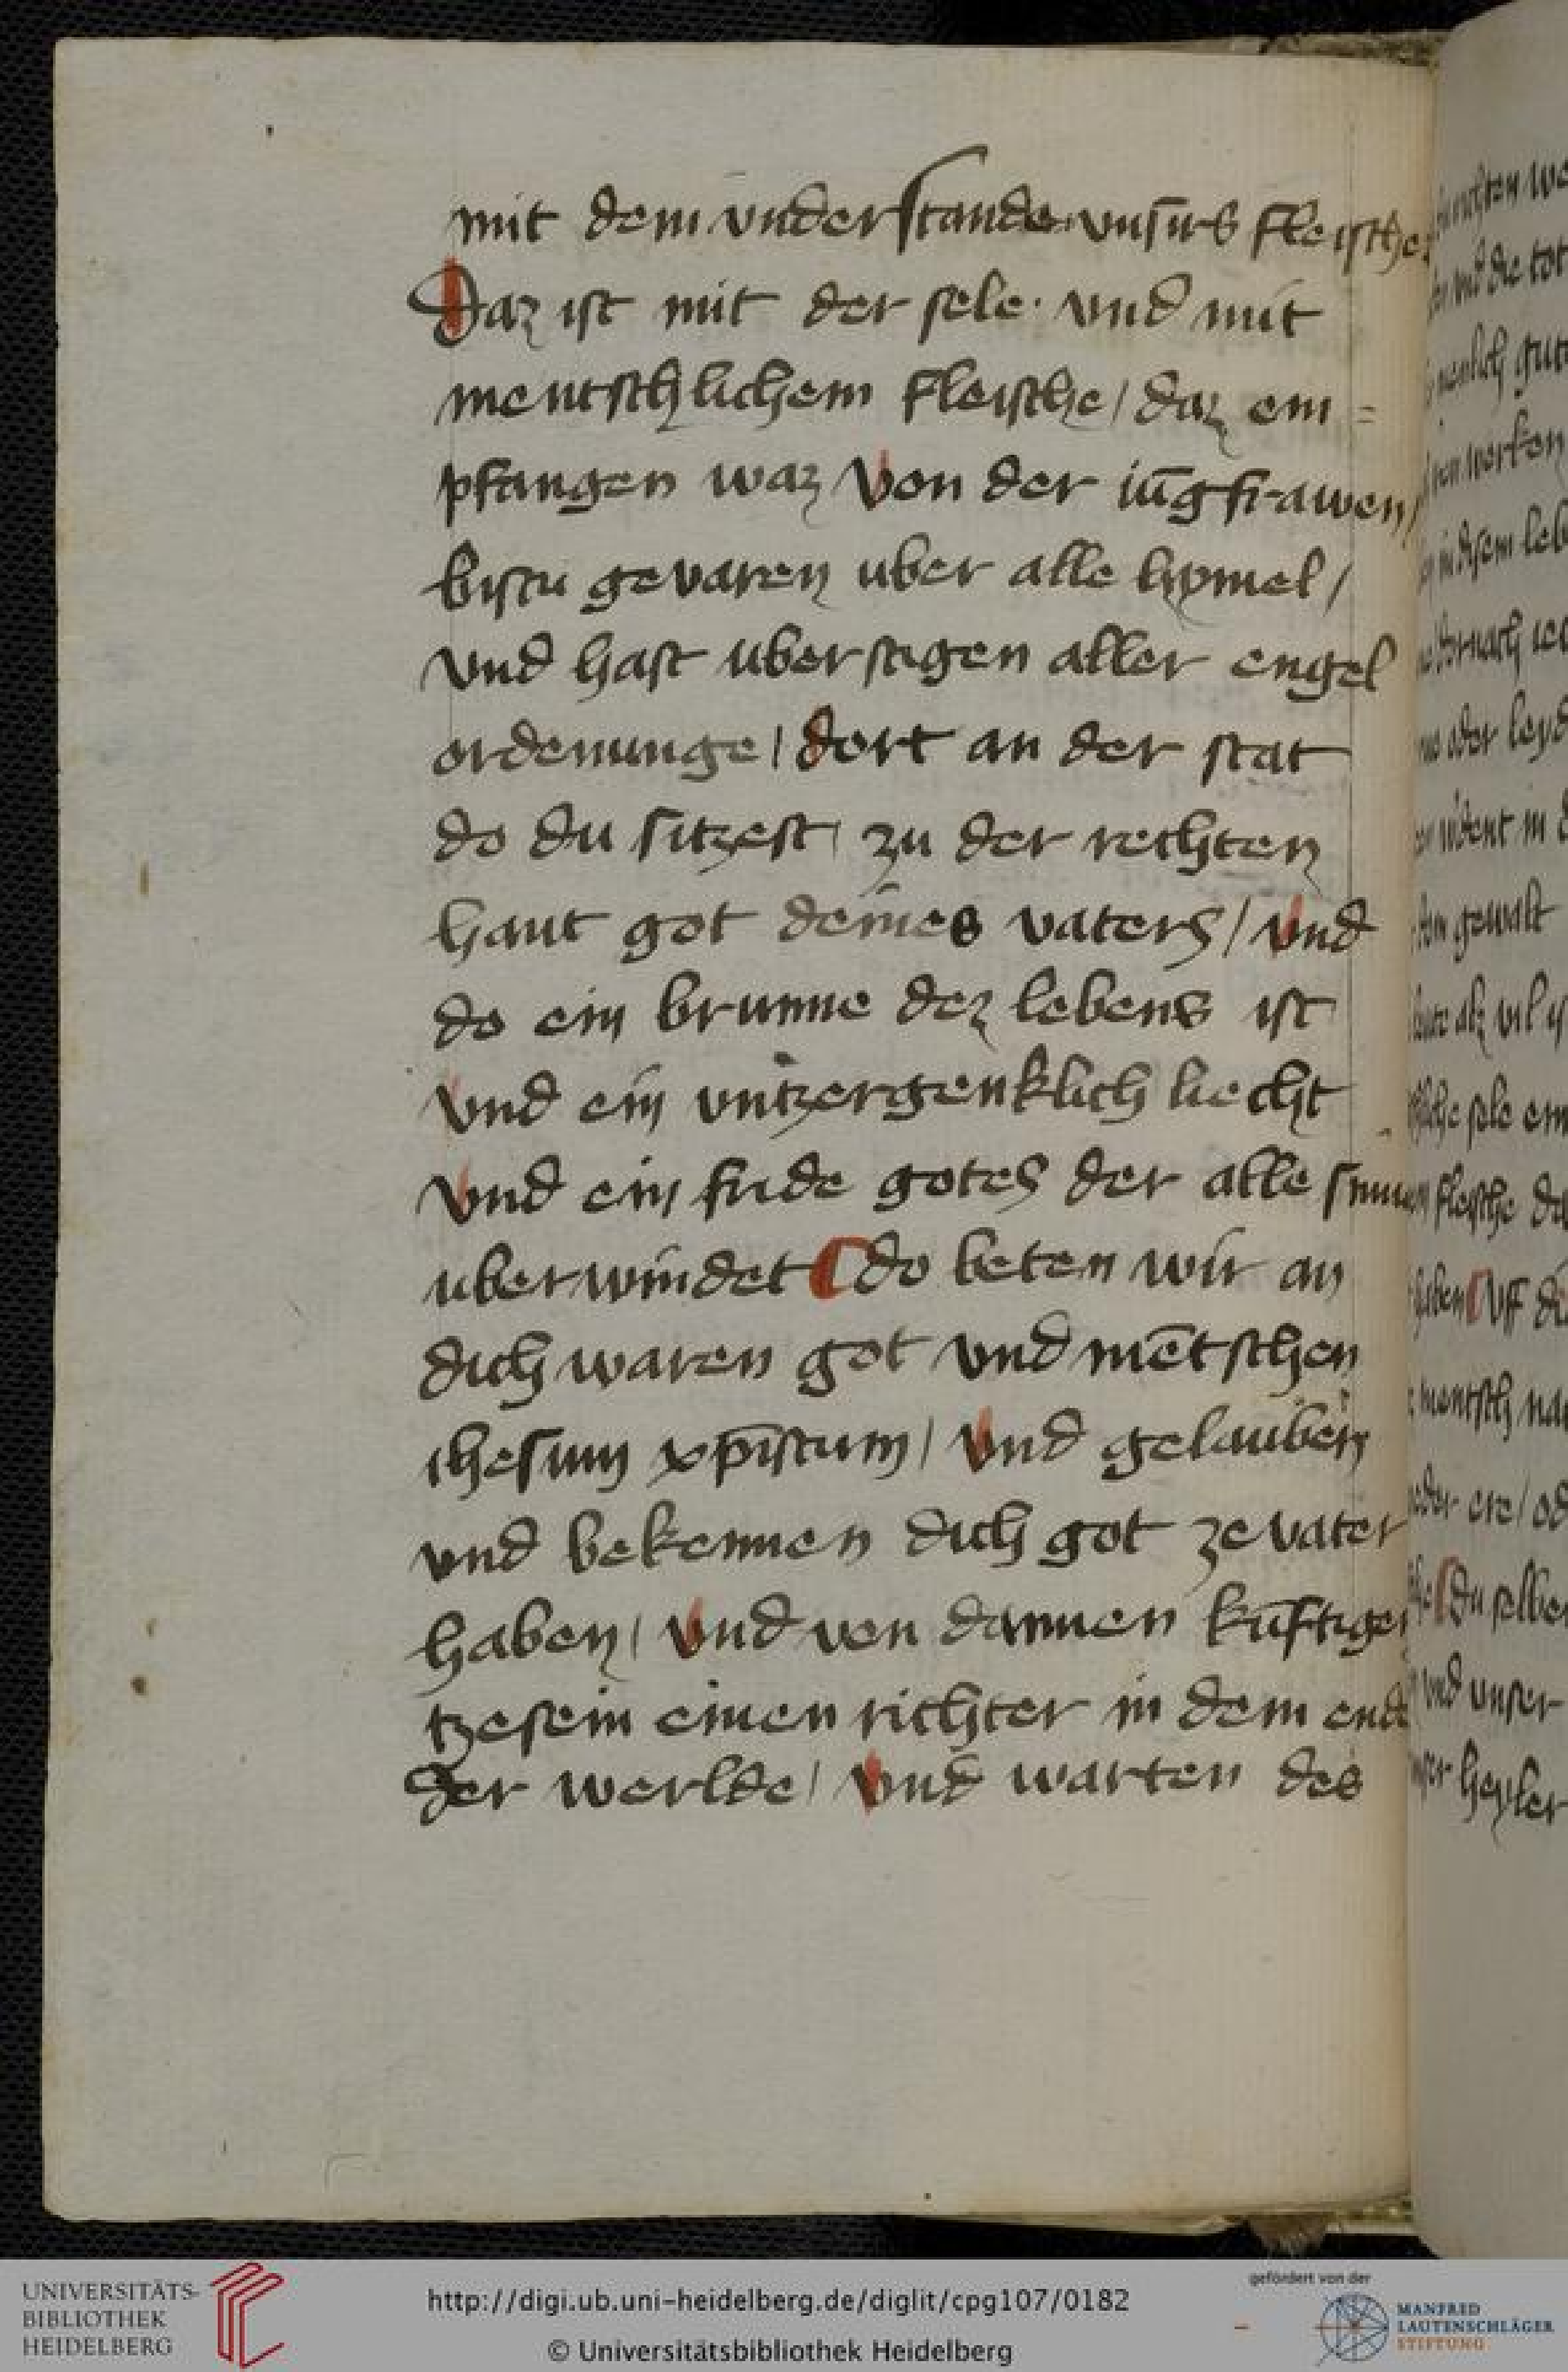 mit dem understande unsirs fleische
Daz ist mit der sele · und mit
mentschlichem fleische / daz em=
pfangen waz von der iūgfrawen /
bistu gevaren uber alle hymel /
und hast uberstigen aller engel
ordenunge / dort an der stat
do du sitzest / zu der rechten
hant got deines vaters / und
do ein brunne dez lebens ist
und ein untzergenklich liecht
und ein fride gotes der alle sinne
uberwindet do beten wir an
dich waren got und mētschen
ihesum xp̄istum / und gelauben
und bekennen dich got ze vater
haben / und von dannen kūftigen
tzesein einen richter in dem end
der werlde / und warten des
und die tot
werken
in disem leb
oder leyd
gewalt
vil
sele
fleische
uff
mentsch
ere / od
du selber
und unser
heyler
UNIVERSITÄTS-
BIBLIOTHEK
HEIDELBERG
http://digi.ub.uni-heidelberg.de/diglit/cpg107/0182
© Universitätsbibliothek Heidelberg
gefördert von der
MANFRED
LAUTENSCHLÄGER
STIFTUNG